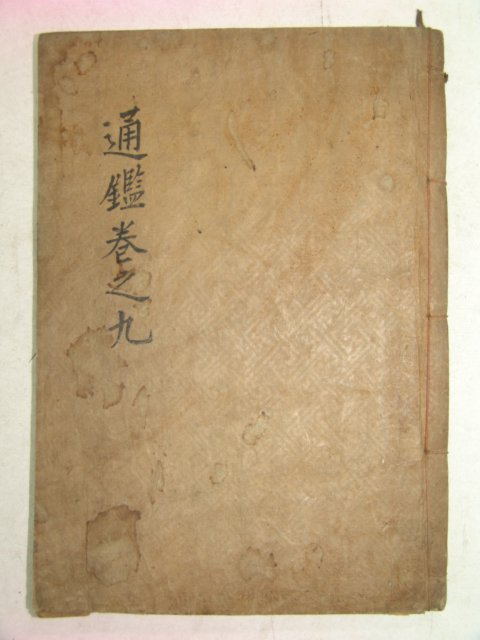 通鑑卷之九